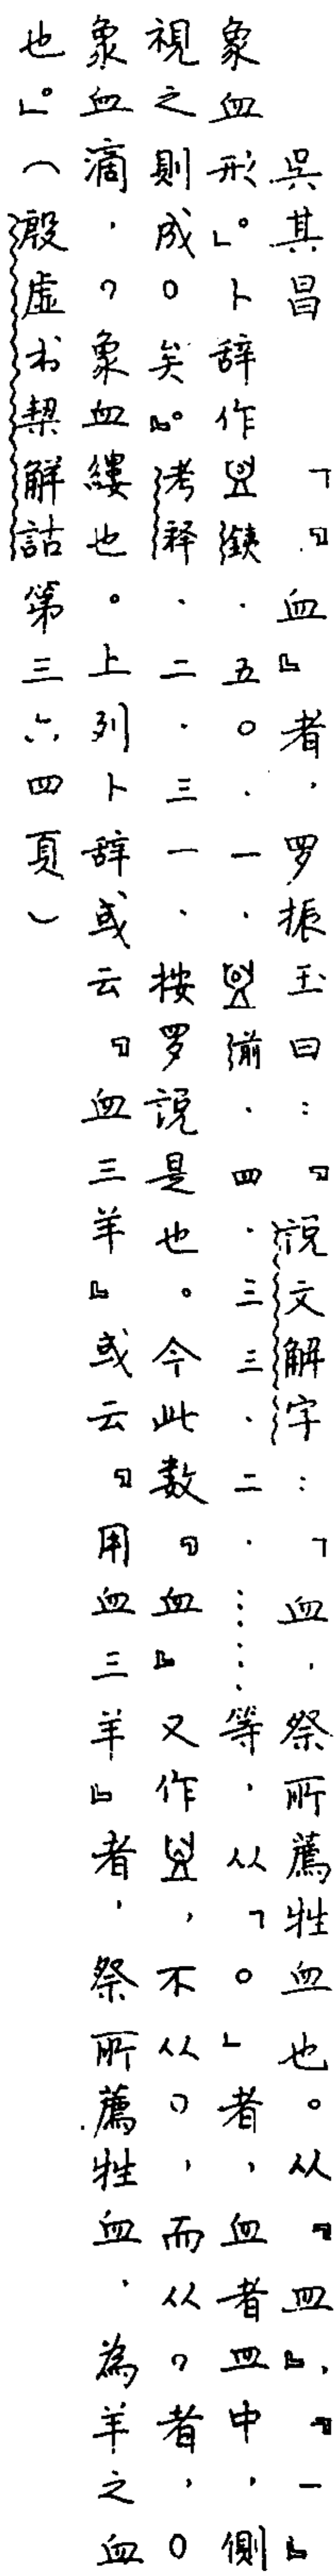 吳其昌　「『血』者，罗振玉曰：『說文解字：「血，祭所薦牲血也。从『皿』，『一』
象血形』。卜辞作鐵．五〇．一．前．四．三三．二．……等，从「〇」者，血者皿中，側
視之則成〇矣』。考释．二．三一．按罗說是也。今此数『血』又作，不从〇，而从者，〇
象血滴，象血縷也。上列卜辞或云『血三羊』或云『用血三羊』者，祭所薦牲血，為羊之血
也』。（殷虚书契解詁第三六四頁）